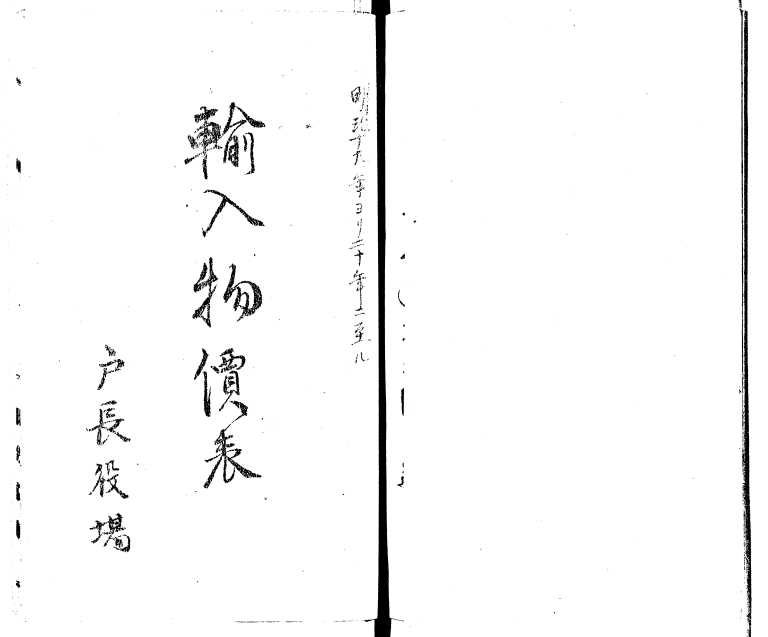 明治十九年ヨリ二十年ニ至ル
輸入物價表
戸長役場